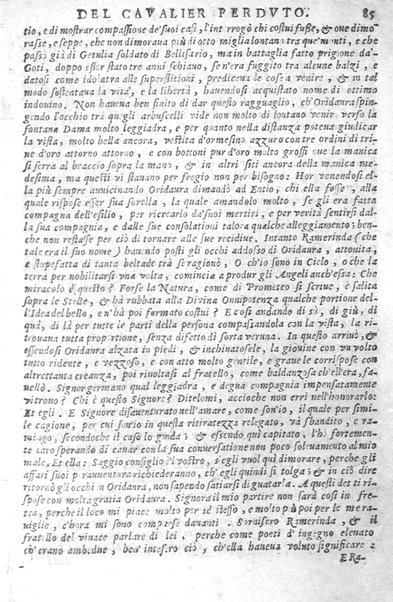 DEL CAVALIER PERDVTO. 85
tio, e di mostrar compassione de'suoi casi, l'interrogò chi costui fusse, & oue dimo
rasse, e seppe, che non dimoraua più di otto miglia lontano tra que'monti, e che
passò già di Getulia soldato di Bellisario, main battaglia fatto prigione da
Goti, doppo essersi sciolto, se n'era fuggito tra alcune balzi, e
datosi come idolatra alle superstitioni, prediceua le cose a venire, & in tal
modo sostentaua la vita, e la libertà, hauendosi acquistato nome di ottimo
indouino. Non haueua ben finito di dar questo ragguaglio, ch'Oridaura spin-
gendo l'occhio tra quegli arbuscelli vide non molto di lontano venir verso la
fontana Dama molto leggiadra, e per quanto nella distanza poteua giudicar
la vista, molto bella ancora, vestita d'ormesino azzuro con tre ordini di tri-
ne d'oro attorno attorno, e con bottoni pur d'oro molto grossi oue la manica
si serra al braccio sopra la mano, & in altri siti ancora della manica me-
desima, ma questi vi stauano per fregio non per bisogno: Hor venendosi el-
la più sempre auuicinando Oridaura dimandò ad Entio, chi ella fosse, alla
quale rispose esser sua sorella, la quale amandolo molto, se gli era fatta
compagna dell'esilio, per ricrearlo da'suoi mertiri, e per verità sentirsi dal-
la sua compagnia, e dalle sue consolationi talora qualche alleggiamento: ben-
che non restasse per ciò di tornare alle sue recidiue. Intanto Ramerinda (che
tale era il suo nome) hauendo posti gli occhi addosso di Oridaura, attonita,
e stupefatta di tanta beltade trà sè ragionò, O ch'io sono in Cielo, o che la
terra per nobilitarsi vna volta, comincia a produr gli Angeli anch'essa: Che
miracolo è questo? Forse la Natura, come di Prometeo si scriue, è salita
sopra le Stelle, & hà rubbata alla Divina Onnipotenza qualche portione del-
l'Idea del bello, e n'hà poi formato costui? E così andando di sù, di giù, di
quà, di là per tutte le parti della persona compassandola con la vista, la ri-
trouaua tutta proportione, senza difetto di sorta veruna. In questo arriuò, &
essendosi Oridaura alzata in piedi, & inchinatosele, la giouine con vn volto
tutto ridente, e vezzoso, e con atto molto gentile, e graue le corrispose con
altrectanta creanza, poi riuoltasi al fratello, come baldanzosa ch'ell'era, fa-
uellò. Signor germano qual leggiadra, e degna compagnia impensatamente
vitrouo? Chi è questo Signore? Ditelomi, accioche non erri nell'honorarlo:
Et egli. E Signore disauenturato nell'amare, come son'io, il quale per simi-
le cagione, per cui son'io in questa ritiratezza relegato, và sbandito, e ra-
mingo, secondoche il caso lo guida: & essendo quì capitato, l'hò fortemen-
te caro sperando di cauar con la sua conuersatione non poco solleuamento al mio
male. Et ella: Saggio consiglio è'l vostro, s'egli vuol quì dimorare, perche gli
affari suoi p rauuentura richiederanno, ch'egli quindi si tolga: & in ciò dire
ritornò gli occhi in Oridaura, non sapendo satiarsi di guatar'a. A questi detti ri-
spose con molta gratia Oridaura. Signora il mio partire non sarà così in fre-
tta, perche il loco mi piace molto per sè stesso, e molto più poi per le mera-
uiglie, che mi sono comparse dauanti. Sorrisero Ramerinda, & il
fratello del viuace parlare di lei, perche come poeti d'ingegno eleuato
ch'erano ambedue, ben'intesero ciò, ch'ella haueua voluto significare:
E Ra-